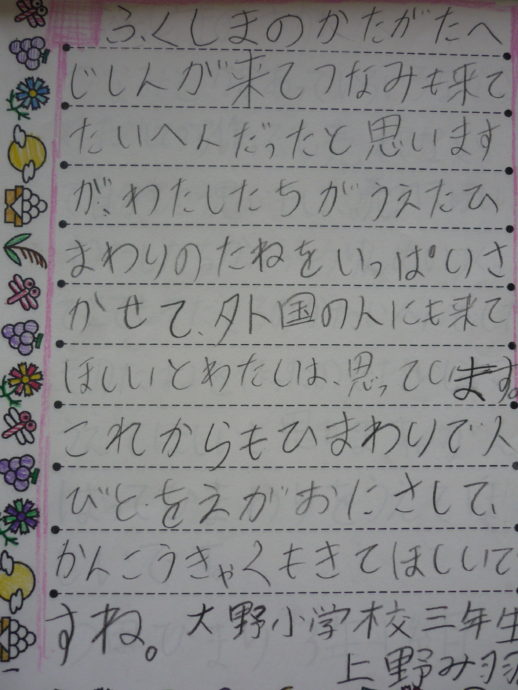 ふくしまのかたがたへ
じしんが来てつなみも来て
たいへんだったと思います
が、わたしたちがうえたひ
まわりのたねをいっぱいさ
かせて、外国の人にも来て
ほしいとわたしは、思っています。
これからもひまわりで人
びとをえがおにさして、
かんこうきゃくもきてほしいで
すね。大野小学校三年生
上野み羽